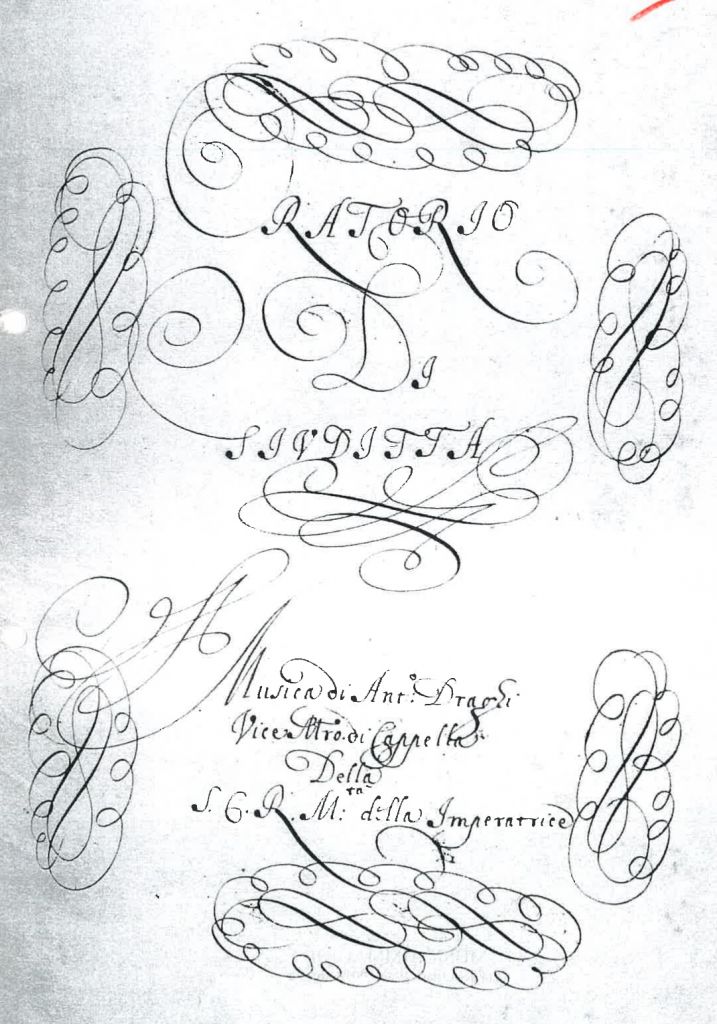 ORATORIO
DI
GIUDITTA
Musica di Ant.º Draghi
Vice Mro. di Cappella
Della
S. C. R. M.ta: della Imperatrice